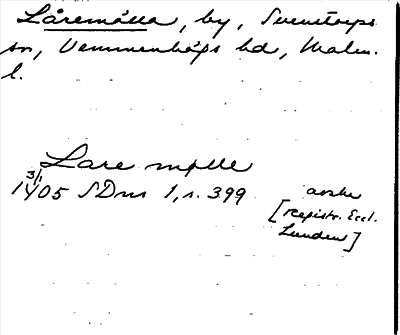 Låremölla, by, Svenstorps
sn, Vemmenhögs hd, Malm.
l.
Lare mølle
3/1
1405 SDns 1, s. 399 avskr
[Registr. Eccl.
Lunden]